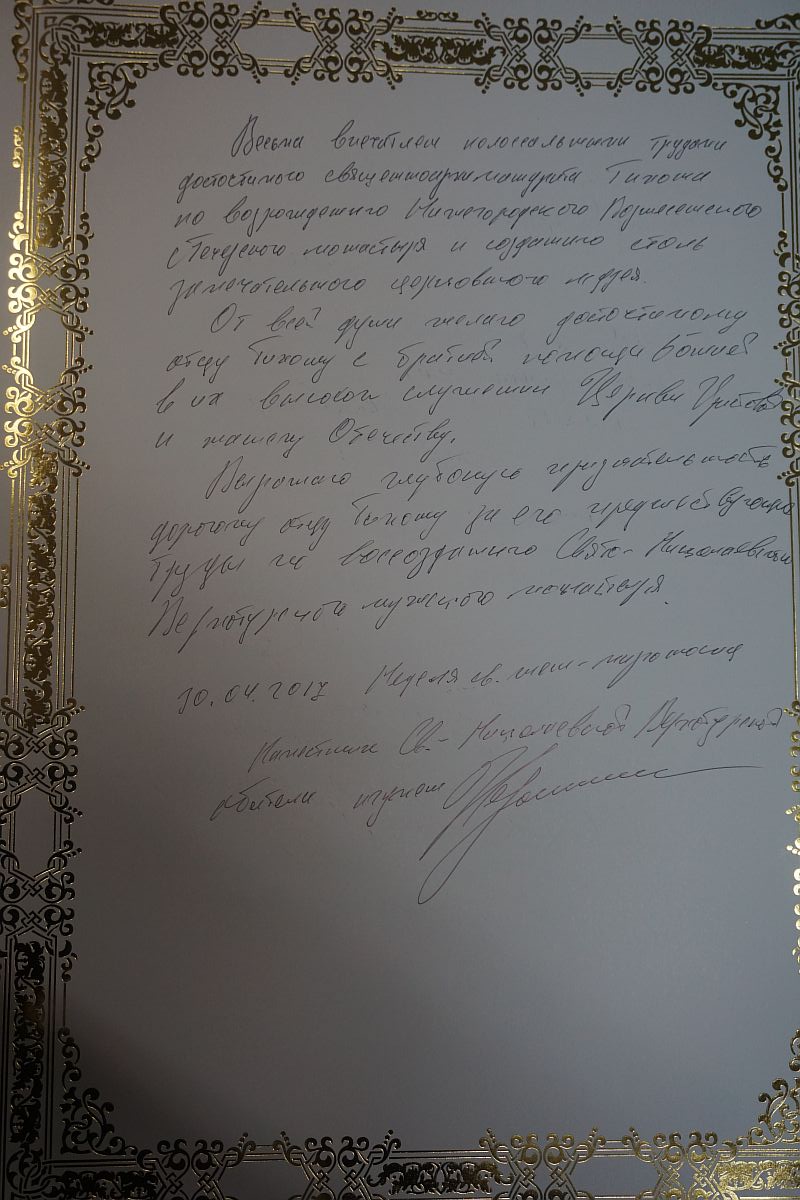 Весьма впечатлен колоссальными трудами
досточтимого священноархимандрита Тихона
по возрождению Нижегородского Вознесенского
Печерского монастыря и созданию столь
замечательного церковного музея.
От всей души желаю досточтимому
отцу Тихону с братией помощи Божией
в их высоком служении Церкви Христовой
и нашему Отечеству.
Выражаю глубокую признательность
дорогому отцу Тихону за его предшествующие
труды по воссозданию Свято-Николаевского
Верхотурского мужского монастыря.
30.04.2017 Неделя св. жен-мироносиц
Наместник Св.-Николаевской Верхотурской
обители игумен